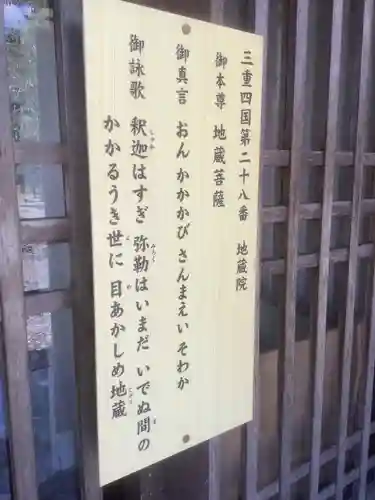 三重四国第二十八番　地蔵院
御本尊　地蔵菩薩
御真言　おんかかかびさんまえいそわか
御詠歌　釈迦はすぎ　弥勒はいまだ　いでぬ間の
かかるうき世に　目あかしめ地蔵